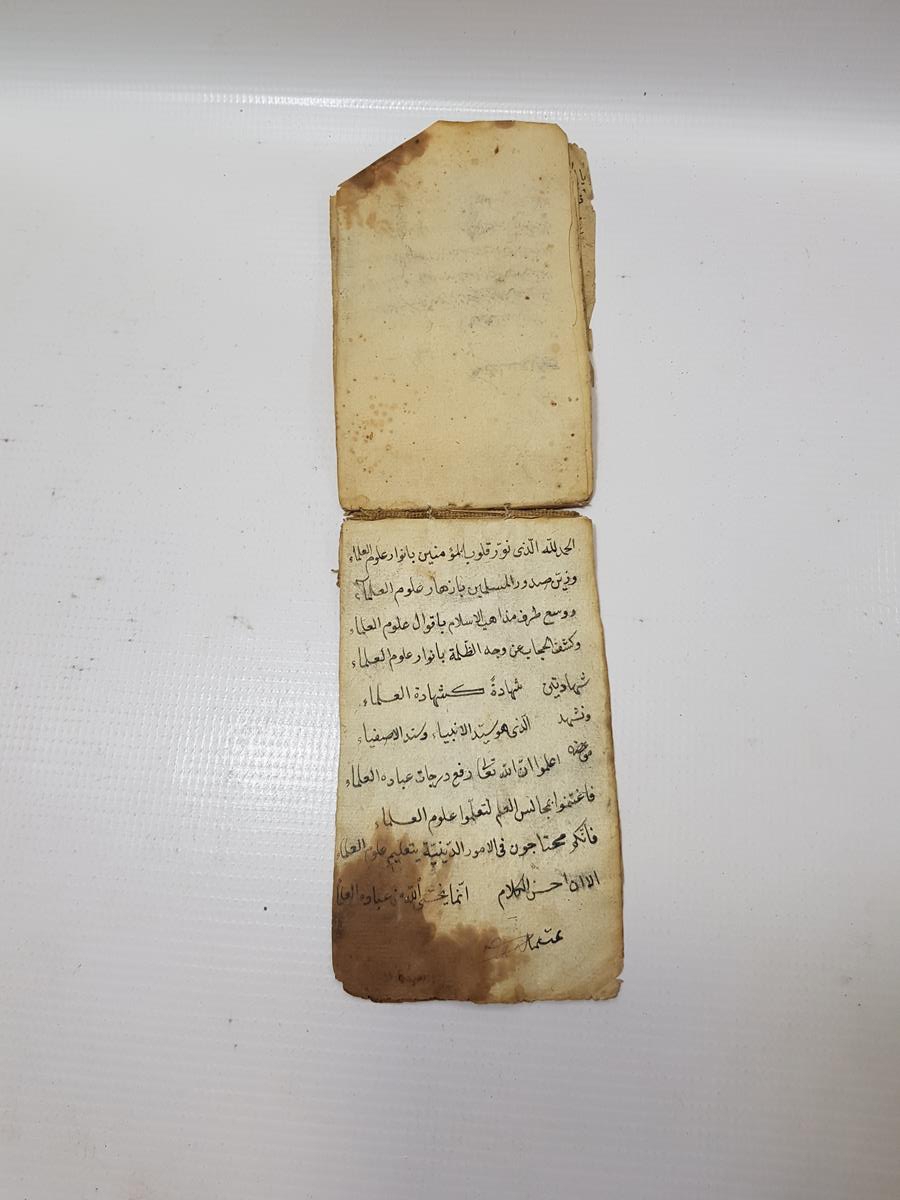 الحمد لله الّذى نوّر قلوب المؤمنين بانوار علوم العلماء
وزيّن صدور المسلمين بازهار علوم العلماء
ووسع طرق مذاهب الاسلام باقوال علوم العلماء
وكشف الحجاب عن وجه الظّلمة بانوار علوم العلماء
شهادتين شهادةً كشهادة العلماء
ونشهد الّذى هو سيّد الانبياء وسند الاصفياء
اعلموا انّ الله تعالى رفع درجات عباده العلماء
فاغتنموا مجالس العلم لتعلّموا علوم العلماء
فانّكم محتاجون فى الامور الدّينيّة بتعليم علوم العلماء
الا ان احسن الكلام انّما يخشى الله من عباده العلماء